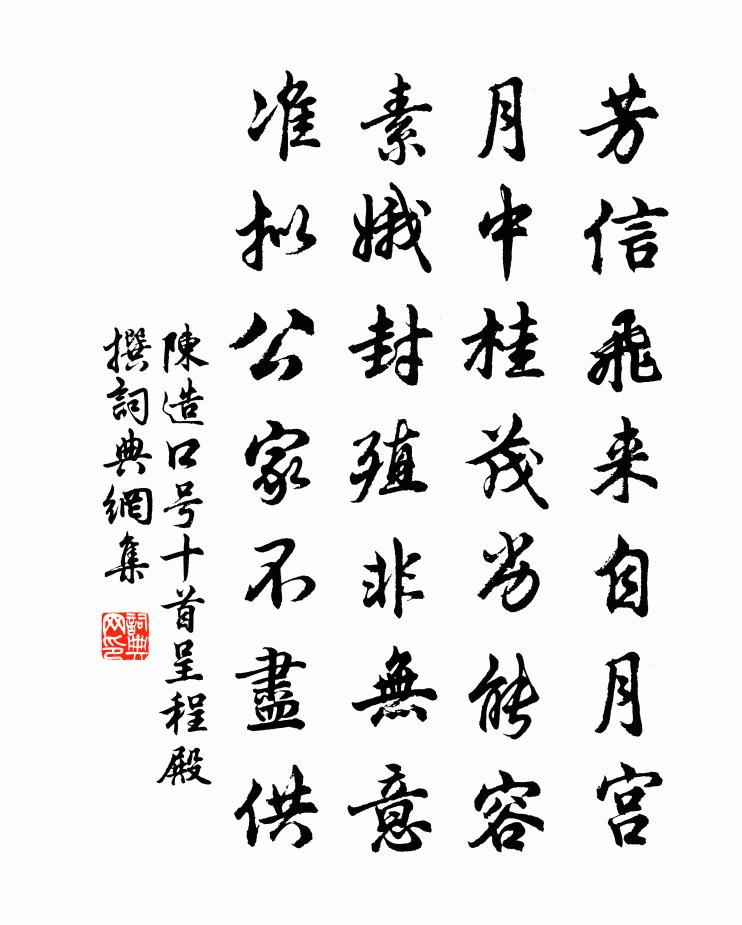 芳信飛来自月宫
月中桂茂劣能容
素娥封殖非無意
准拟公家不盡供
陳造口号十首呈程殿
撰詞典網集
詞典网印